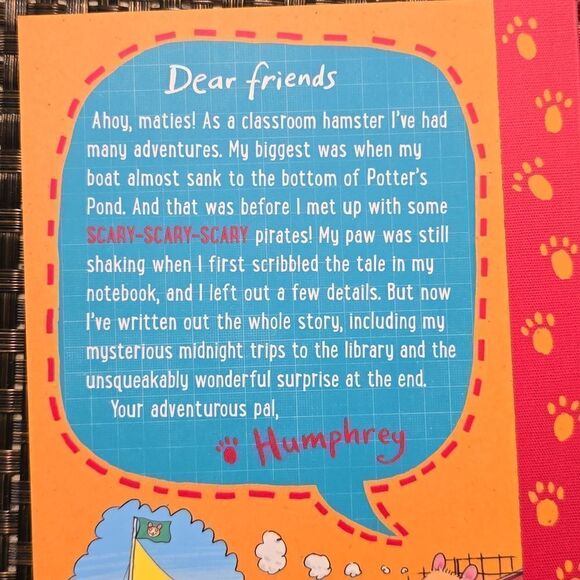 Dear friends
Ahoy, maties! As a classroom hamster I've had
many adventures. My biggest was when my
boat almost sank to the bottom of Potter's
Pond. And that was before I met up with some
SCARY-SCARY-SCARY pirates! My paw was still
shaking when I first scribbled the tale in my
notebook, and I left out a few details. But now
I've written out the whole story, including my
mysterious midnight trips to the library and the
unsqueakably wonderful surprise at the end.
Your adventurous pal,
Humphrey